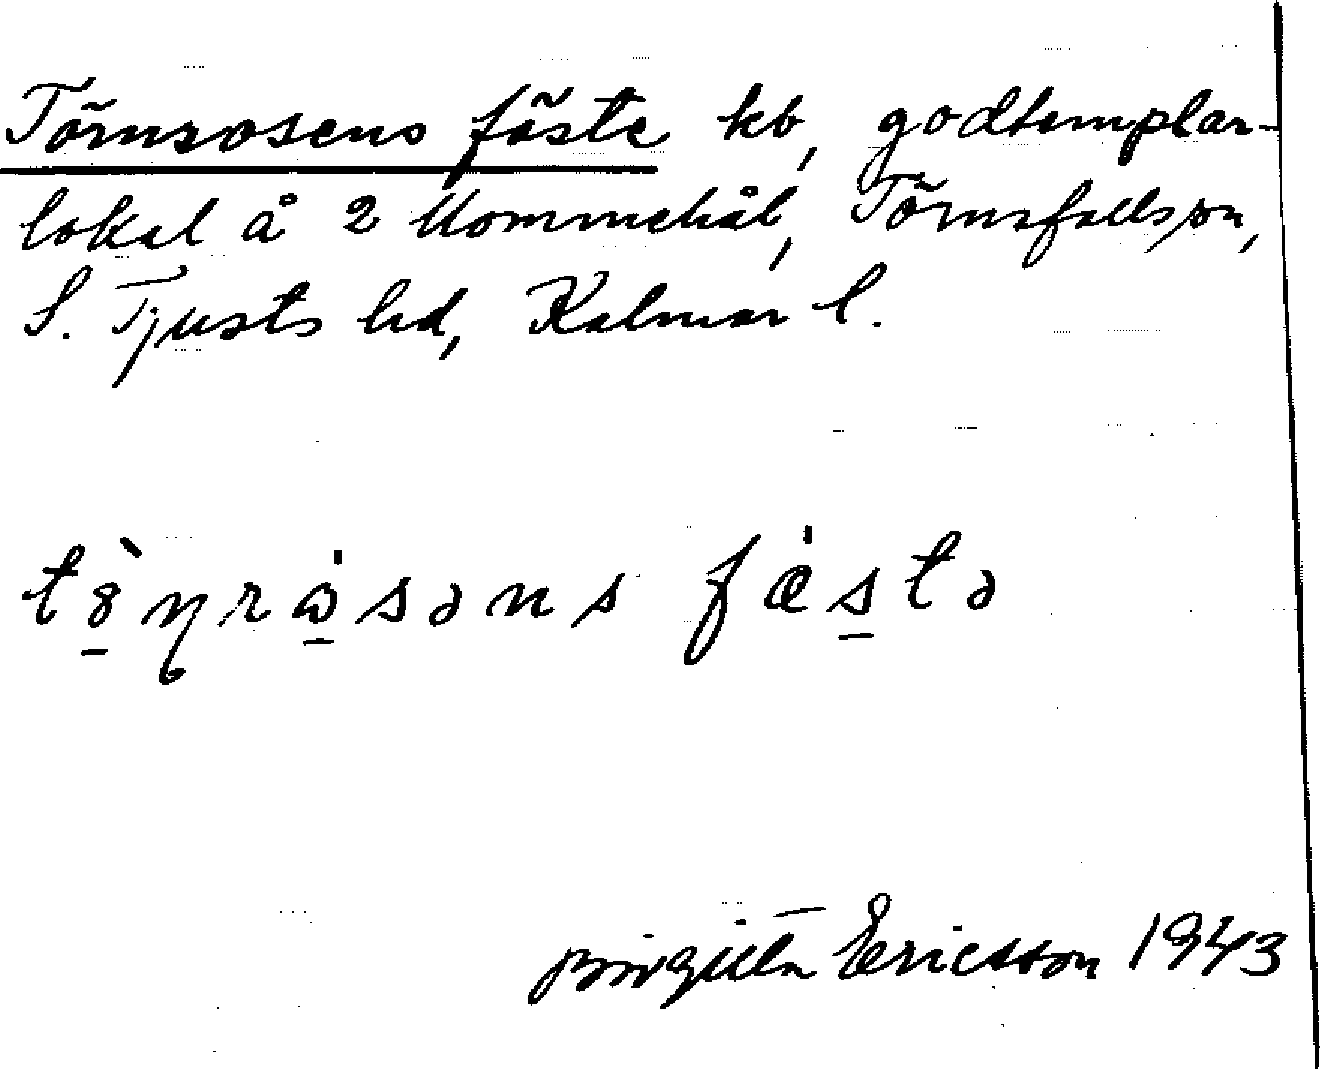 Törnrosens fäste kb, godtemplar-
lokal å 2 Mommehål, Törnsfallssn,
S. Tjusts hd, Kalmar l.
Birgitta Ericsson 1943